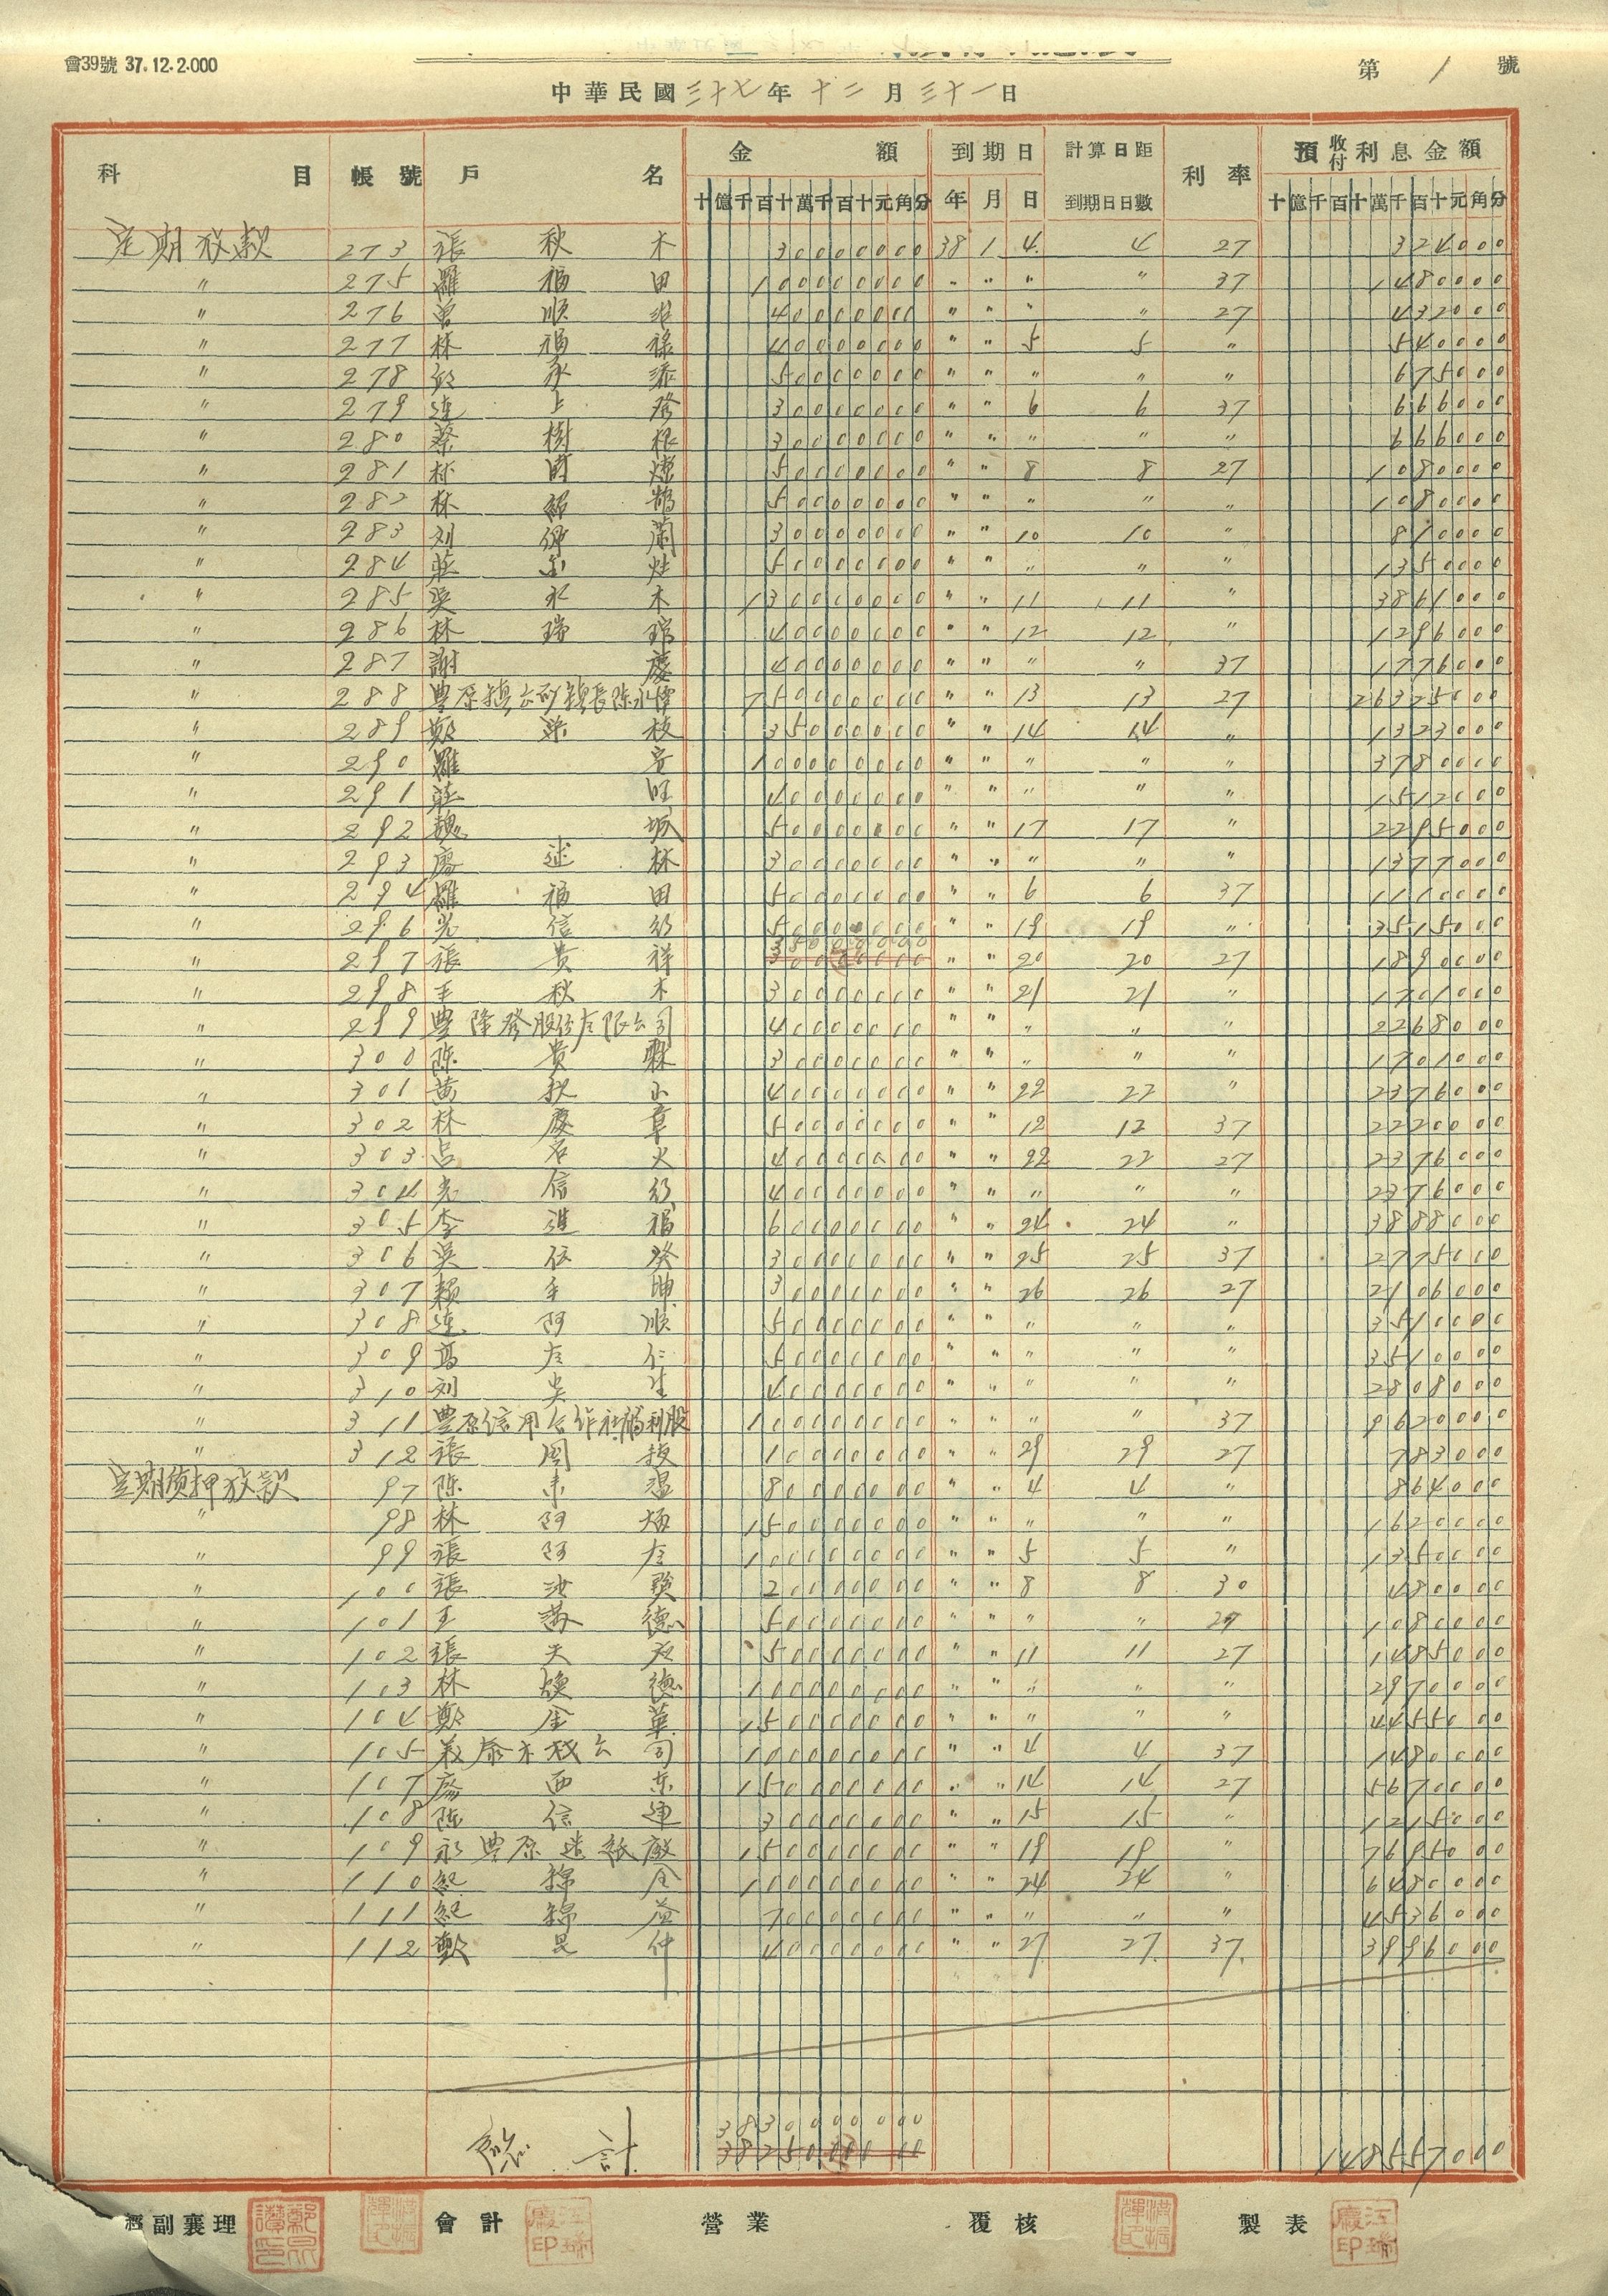 會39號 37.12.2.000
第 1 號
中華民國三十七年十二月三十一日
科目 帳號 戶名 金額 到期日 計算日距到期日日數 利率 預收付利息金額
十億千百十萬千百十元角分 年 月 日 十億千百十萬千百十元角分
定期放款 273 張秋木 30000000 38 1 4 4 27 324000
〃 275 羅福田 100000000 〃 〃 〃 〃 37 1480000
〃 276 曾順 40000000 〃 〃 〃 〃 27 432000
〃 277 林福祿 40000000 〃 〃 5 5 〃 540000
〃 278 添 50000000 〃 〃 〃 〃 〃 675000
〃 279 連上發 30000000 〃 〃 6 6 37 666000
〃 280 蔡樹根 30000000 〃 〃 〃 〃 〃 666000
〃 281 林 50000000 〃 〃 8 8 27 1080000
〃 282 林鶴 50000000 〃 〃 〃 〃 〃 1080000
〃 283 刘蘭 30000000 〃 〃 10 10 〃 810000
〃 284 莊灶 50000000 〃 〃 〃 〃 〃 1350000
〃 285 吳水木 130000000 〃 〃 11 11 〃 3861000
〃 286 林瑞 40000000 〃 〃 12 12 〃 1296000
〃 287 謝慶 40000000 〃 〃 〃 〃 37 1776000
〃 288 豊原鎮公所鎮長陳水潭 750000000 〃 〃 13 13 27 26325000
〃 289 鄭枝 35000000 〃 〃 14 14 〃 1323000
〃 290 羅安 100000000 〃 〃 〃 〃 〃 3780000
〃 291 莊旺 40000000 〃 〃 〃 〃 〃 1512000
〃 292 魏城 50000000 〃 〃 17 17 〃 2295000
〃 293 廖述林 30000000 〃 〃 〃 〃 〃 1377000
〃 294 羅福田 50000000 〃 〃 6 6 37 1110000
〃 296 信 50000000 〃 〃 19 19 〃 3515000
〃 297 張貴祥 35000000 〃 〃 20 20 27 1890000
〃 298 王秋木 30000000 〃 〃 21 21 〃 1701000
〃 299 豊隆發股份有限公司 40000000 〃 〃 〃 〃 〃 2268000
〃 300 陳貴 30000000 〃 〃 〃 〃 〃 1701000
〃 301 黃秋 40000000 〃 〃 22 22 〃 2376000
〃 302 林慶章 50000000 〃 〃 12 12 37 2220000
〃 303 呂石火 40000000 〃 〃 22 22 27 2376000
〃 304 信 40000000 〃 〃 〃 〃 〃 2376000
〃 305 李進福 60000000 〃 〃 24 24 〃 3888000
〃 306 吳發 30000000 〃 〃 25 25 37 2775000
〃 307 賴坤 30000000 〃 〃 26 26 27 2106000
〃 308 連阿順 50000000 〃 〃 〃 〃 〃 3510000
〃 309 馮左仁 50000000 〃 〃 〃 〃 〃 3510000
〃 310 刘生 40000000 〃 〃 〃 〃 〃 2808000
〃 311 豊原信用合作社福利股 100000000 〃 〃 〃 〃 37 9620000
〃 312 張周 10000000 〃 〃 29 29 27 783000
定期质押放款 97 陳溫 80000000 〃 〃 4 4 〃 864000
〃 98 林阿 150000000 〃 〃 〃 〃 〃 1620000
〃 99 張阿左 100000000 〃 〃 5 5 〃 1350000
〃 100 張 20000000 〃 〃 8 8 30 480000
〃 101 王德 50000000 〃 〃 〃 〃 27 1080000
〃 102 張天 50000000 〃 〃 11 11 27 1485000
〃 103 林德 100000000 〃 〃 〃 〃 〃 2970000
〃 104 鄭金華 150000000 〃 〃 〃 〃 〃 4455000
〃 105 義泰木材公司 100000000 〃 〃 4 4 37 1480000
〃 107 廖西東 150000000 〃 〃 14 14 27 5670000
〃 108 陳信連 30000000 〃 〃 15 15 〃 1215000
〃 109 永豊原造紙廠 150000000 〃 〃 19 19 〃 7695000
〃 110 紀錦全 100000000 〃 〃 24 24 〃 6480000
〃 111 紀錦益 70000000 〃 〃 〃 〃 〃 4536000
〃 112 鄭昆仲 40000000 〃 〃 27 27 37 3996000
總計 3830000000 148557000
經副襄理 會計 營業 覆核 製表